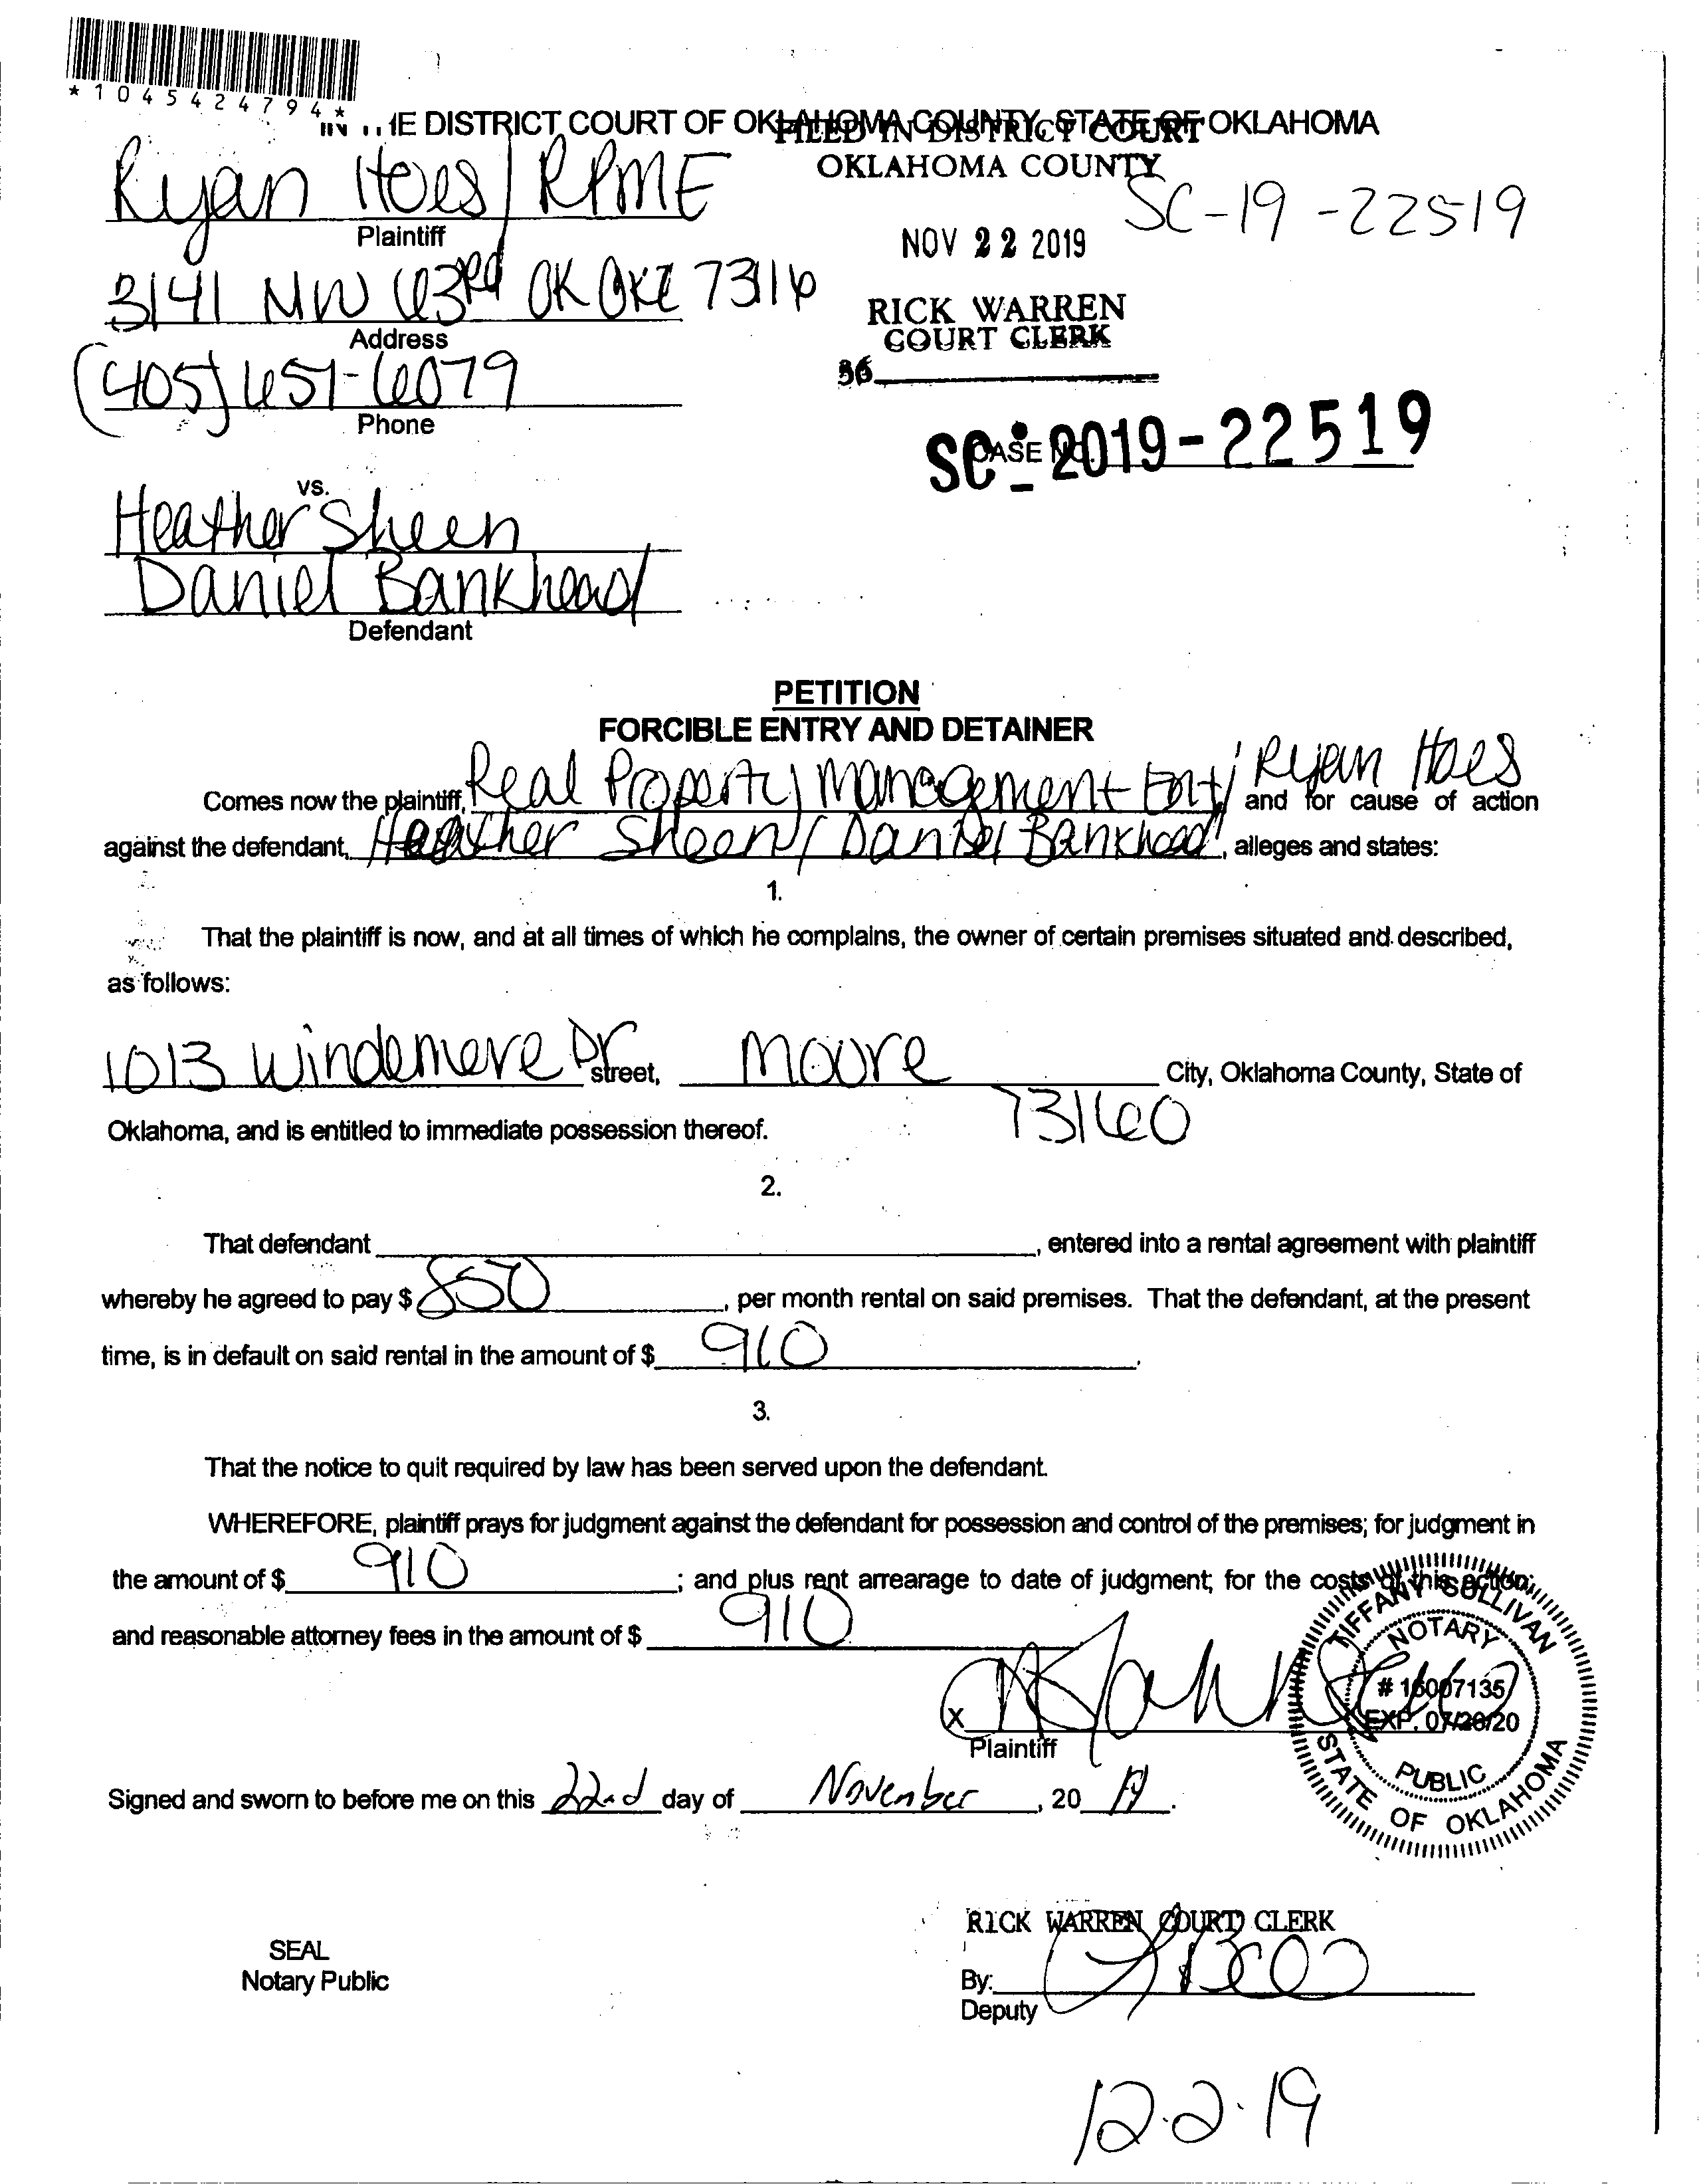 *1045424794*
IN THE DISTRICT COURT OF OKLAHOMA COUNTY, STATE OF OKLAHOMA
FILED IN DISTRICT COURT
OKLAHOMA COUNTY
Ryan Hoes / RPME
SC-19-22519
Plaintiff
NOV 22 2019
3141 NW 63rd OK OKC 73116
RICK WARREN
COURT CLERK
Address
36
(405) 651-6079
Phone
SC-2019-22519
CASE NO.
vs.
Heather Sheen
Daniel Bankhead
Defendant
PETITION
FORCIBLE ENTRY AND DETAINER
Comes now the plaintiff, Real Property Management Ent / Ryan Hoes and for cause of action
against the defendant, Heather Sheen / Daniel Bankhead, alleges and states:
1.
That the plaintiff is now, and at all times of which he complains, the owner of certain premises situated and described,
as follows:
1013 Windemere Dr street, Moore City, Oklahoma County, State of
73160
Oklahoma, and is entitled to immediate possession thereof.
2.
That defendant , entered into a rental agreement with plaintiff
whereby he agreed to pay $ 850 , per month rental on said premises. That the defendant, at the present
time, is in default on said rental in the amount of $ 910 .
3.
That the notice to quit required by law has been served upon the defendant.
WHEREFORE, plaintiff prays for judgment against the defendant for possession and control of the premises; for judgment in
the amount of $ 910 ; and plus rent arrearage to date of judgment; for the costs of this action;
and reasonable attorney fees in the amount of $ 910
X
Plaintiff
TIFFANY SULLIVAN
NOTARY
# 16007135
EXP. 07/26/20
PUBLIC
STATE OF OKLAHOMA
Signed and sworn to before me on this 22nd day of November , 20 19 .
RICK WARREN COURT CLERK
SEAL
Notary Public
By:
Deputy
12-2-19